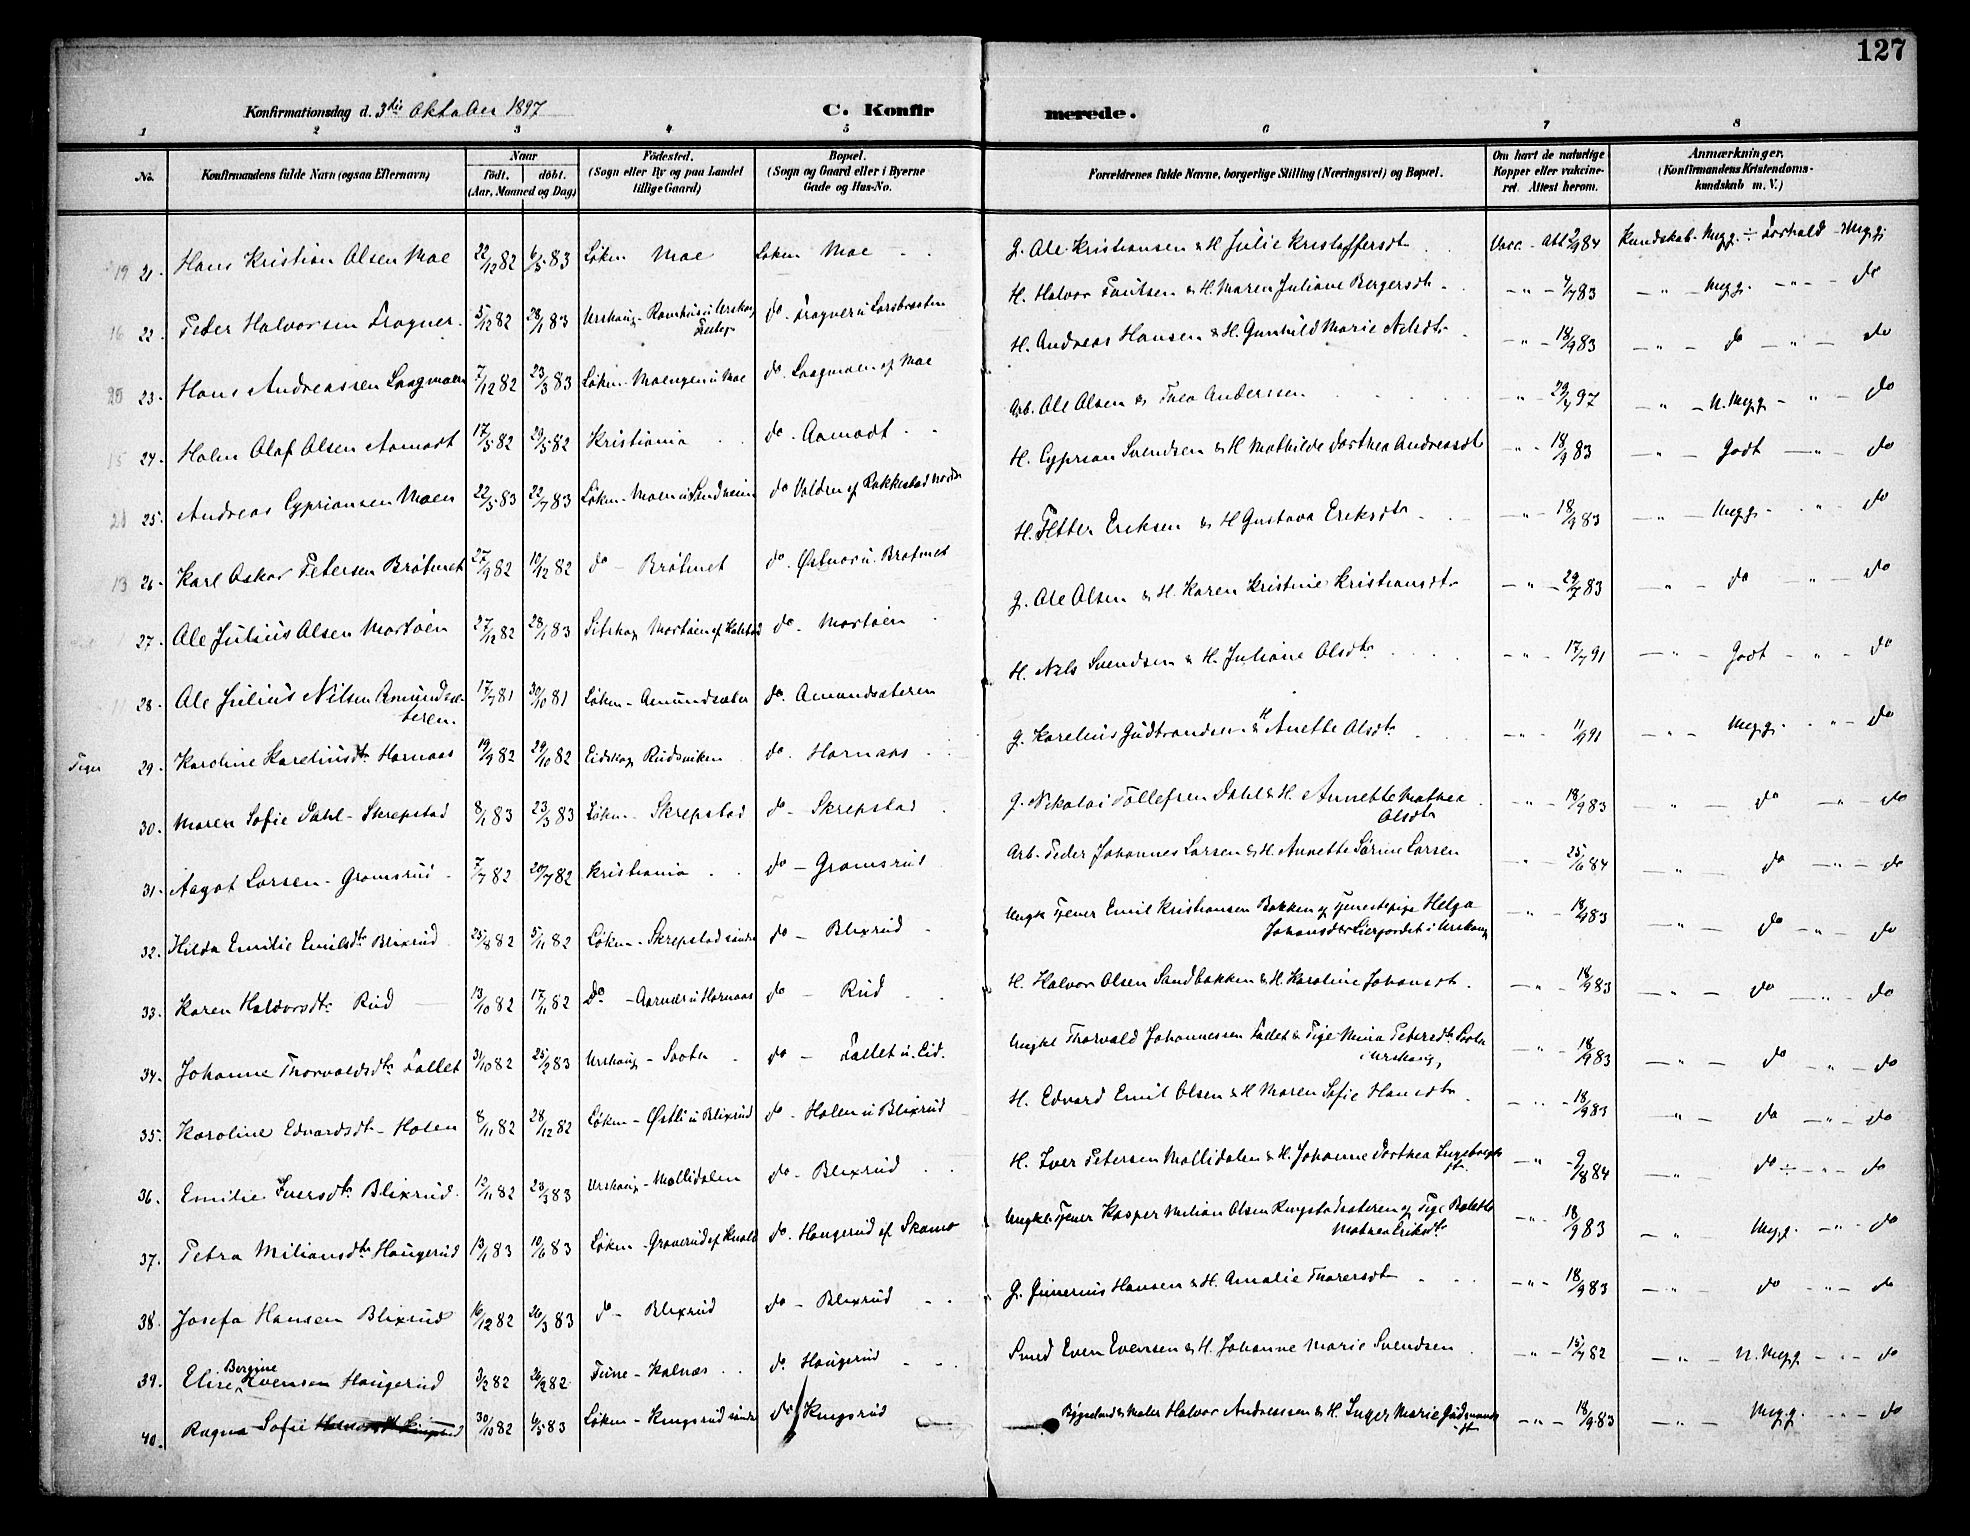 127
Konfirmationsdag d. 3die Oktober 1897 C. Konfirmerede.
1 2 3 4 5 6 7 8
No. Konfirmandens fulde Navn (ogsaa Efternavn) Naar født. døbt. (Aar, Maaned og Dag) Fødested. (Sogn eller By og paa Landet tillige Gaard) Bopæl. (Sogn og Gaard eller i Byerne Gade og Hus-No. Forældrenes fulde Navne, borgerlige Stilling (Næringsvei) og Bopæl. Om havt de naturlige Kopper eller vakcineret. Attest herom. Anmærkninger. (Konfirmandens Kristendomskundskab m. V.)
19 21. Hans Kristian Olsen Moe 22/12 82 6/5 83 Løken Moe Løken Moe G. Ole Kristiansen & H. Julie Kristoffersdt Vacc. - Att 2/9 84 Kundskab - Meg. g. ÷ Forhold - Meg. g.
16 22. Peder Halvorsen Fragner 5/12 82 28/1 83 Urskoug do. Fragner u Larsbraaten H. Halvor Paulsen & H. Maren Juliane Bergersdt - " - 7/7 83 - " - Meg g. - " - do
20 23. Hans Andreassen Laagmoen 7/12 82 23/3 83 Løken - Moengen u Moe do. Laagmoen af Moe H. Andreas Hansen & H. Gunhild Marie - " - 18/9 83 - " - do - " - do
15 24. Holm Olaf Olsen Aamodt 17/5 82 29/5 82 Kristiania do. Aamodt Arb. Ole Olsen & Thea Andersen - " - 29/4 97 - " - N. Meg g - " - do
21 25. Andreas Cypriansen Moen 22/5 83 22/7 83 Løken - Moen u Sandneim do Valdren af Rakkestad H. Cyprian Svendsen & H Mathilde Dorthea Andreasdt - " - 18/9 83 - " - Godt - " - do
13 26. Karl Oskar Petersen Bråtmet 27/9 82 10/12 82 do - Bråtmet do. Østnor u. Bråtmet H. Petter Eriksen & H Gustava Eriksdtr - " - 18/9 83 - " - Meg g. - " - do
27. Ole Julius Olsen Mortoen 27/12 82 28/1 83 Setskog Mortoen af Kolstad do. Mortoen G. Ole Olsen & H. Karen Kristine Kristiansdtr - " - 29/7 83 - " - do - " - do
11 28. Ole Julius Nilsen Amundsæteren. 17/7 81 30/10 81 Løken - Amundsæter do. Amundsæteren H. Nils Svendsen & H. Juliane Olsdtr - " - 17/7 91 - " - Godt - " - do
29. Karoline Kareliusdtr Harnaas 19/9 82 29/10 82 Eidskog Rudsviken do. Harnaas G. Karelius Gudbrandsen & H Anette Olsdtr - " - 1/9 91 - " - Meg g. - " - do
30. Maren Sofie Dahl - Skrepstad 8/1 83 23/3 83 Løken - Skrepstad do - Skrepstad G. Nikolai Tollefsen Dahl & H. Annette Mathea Olsdtr - " - 18/9 83 - " - do - " - do
31. Aagot Larsen - Gramsrud 7/7 82 20/7 82 Kristiania do - Gramsrud Arb. Peder Johannes Larsen & H. Annette Sørine Larsen - " - 25/6 84 - " - do - " - do
32. Hilda Emilie Emilsdtr Blixrud 25/8 82 5/11 82 Løken - Skrepstad søndre do - Blixrud Ungk Tjener Emil Kristiansen Bakken og Tjenestepige Helga Johansdtr Lierfordet i Urskoug - " - 18/9 83 - " - do - " - do
33. Karen Haldorsdtr Rud 13/10 82 17/11 82 Do - Aarnæs u Harnaas do - Rud H. Halvor Olsen Sandbakken & H. Karoline Johansdt - " - 18/9 83 - " - do - " - do
34. Johanne Thorvaldsdtr Fallet 31/10 82 25/2 83 Urskoug - Sooter do - Fallet u. Eid. Ungkl Thorvald Johannessen Fallet & Pige Mina Petersdtr i Urskoug - " - 18/9 83 - " - do - " - do
35. Karoline Edvardsdtr - Holen 8/11 82 28/12 82 Løken - Østli u Blixrud do - Holen u Blixrud H. Edvard Emil Olsen & H Maren Sofie Hansdtr - " - 18/9 83 - " - do - " - do
36. Emilie Iversdtr Blixrud 12/11 82 23/3 83 Urskoug - Mollidalen do - Blixrud H. Iver Petersen Mollidalen & H. Johanne Dorthea Ingeborgsdt. - " - 9/8 84 - " - do ÷ - " - do
37. Petra Miliansdtr Haugerud 13/1 83 10/6 83 Løken - Graverud af Kvald do. Haugerud af Skamo Ungkl Tjener Kasper Milian Olsen Ringstadsæteren og Pige Bolette Mathea Eriksdtr - " - 18/9 83 - " - Meg g. - " - do
38. Josefa Hansen Blixrud 16/12 82 26/3 83 do - Blixrud do - Blixrud G. Gunerius Hansen & H. Amalie Thoresdt - " - 18/9 83 - " - do - " - do
39. Elise Bergine Evensen Haugerud 3/2 82 26/2 82 Tune - Kalnæs do Haugerud Smed Even Evensen & H. Johanne Marie Svendsen - " - 15/7 82 - " - N. Meg g. - " - do
40. Ragna Sofie 30/10 82 6/5 83 Løken - Kragsrud søndre do Kragsrud Halvor Andreassen & H. Inger Marie - " - 18/9 83 - " - Meg g. - " - do